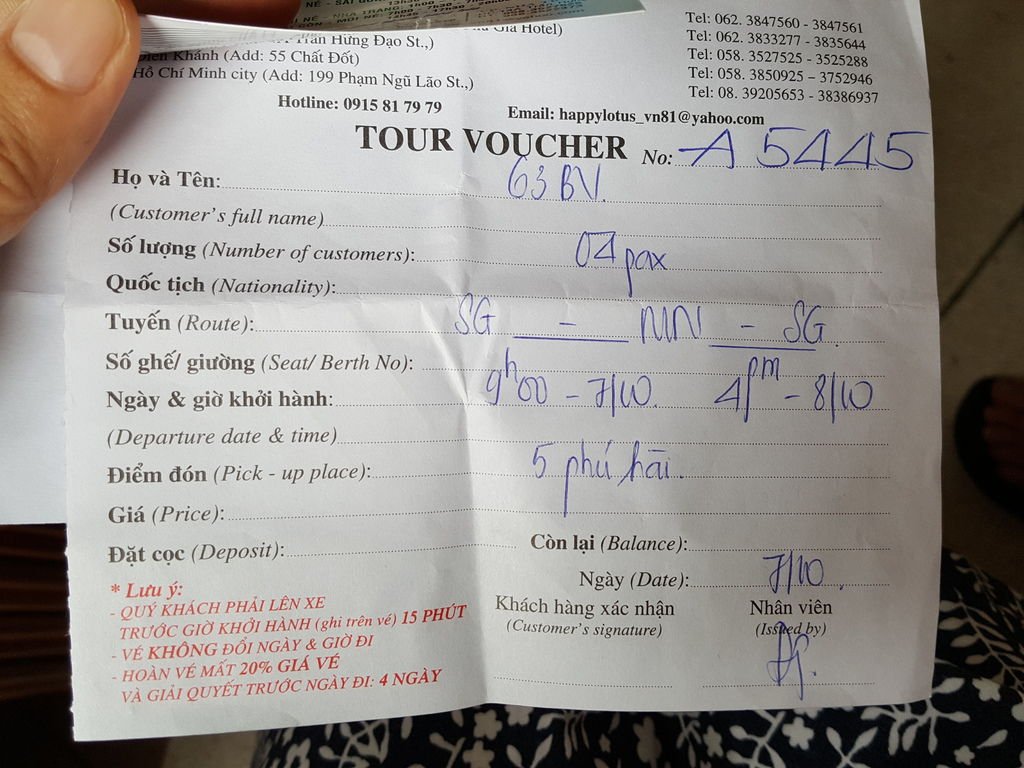 Hưng Đạo St.,)
Khánh (Add: 55 Chất Đốt)
Hồ Chí Minh city (Add: 199 Phạm Ngũ Lão St.,)
Gia Hotel)
Tel: 062. 3847560 - 3847561
Tel: 062. 3833277 - 3835644
Tel: 058. 3527525 - 3525288
Tel: 058. 3850925 - 3752946
Tel: 08. 39205653 - 38386937
Hotline: 0915 81 79 79
Email: happylotus_vn81@yahoo.com
TOUR VOUCHER No: A 5445
Họ và Tên: 63 BV.
(Customer's full name)
Số lượng (Number of customers): 04 pax
Quốc tịch (Nationality):
Tuyến (Route): SG - MN - SG
Số ghế/ giường (Seat/ Berth No):
Ngày & giờ khởi hành: 9h00 - 7/10. 4pm - 8/10
(Departure date & time)
Điểm đón (Pick - up place): 5 phú hài.
Giá (Price):
Đặt cọc (Deposit): Còn lại (Balance):
Ngày (Date): 7/10.
Khách hàng xác nhận
(Customer's signature)
Nhân viên
(Issued by)
* Lưu ý:
- QUÝ KHÁCH PHẢI LÊN XE
TRƯỚC GIỜ KHỞI HÀNH (ghi trên vé) 15 PHÚT
- VÉ KHÔNG ĐỔI NGÀY & GIỜ ĐI
- HOÀN VÉ MẤT 20% GIÁ VÉ
VÀ GIẢI QUYẾT TRƯỚC NGÀY ĐI: 4 NGÀY